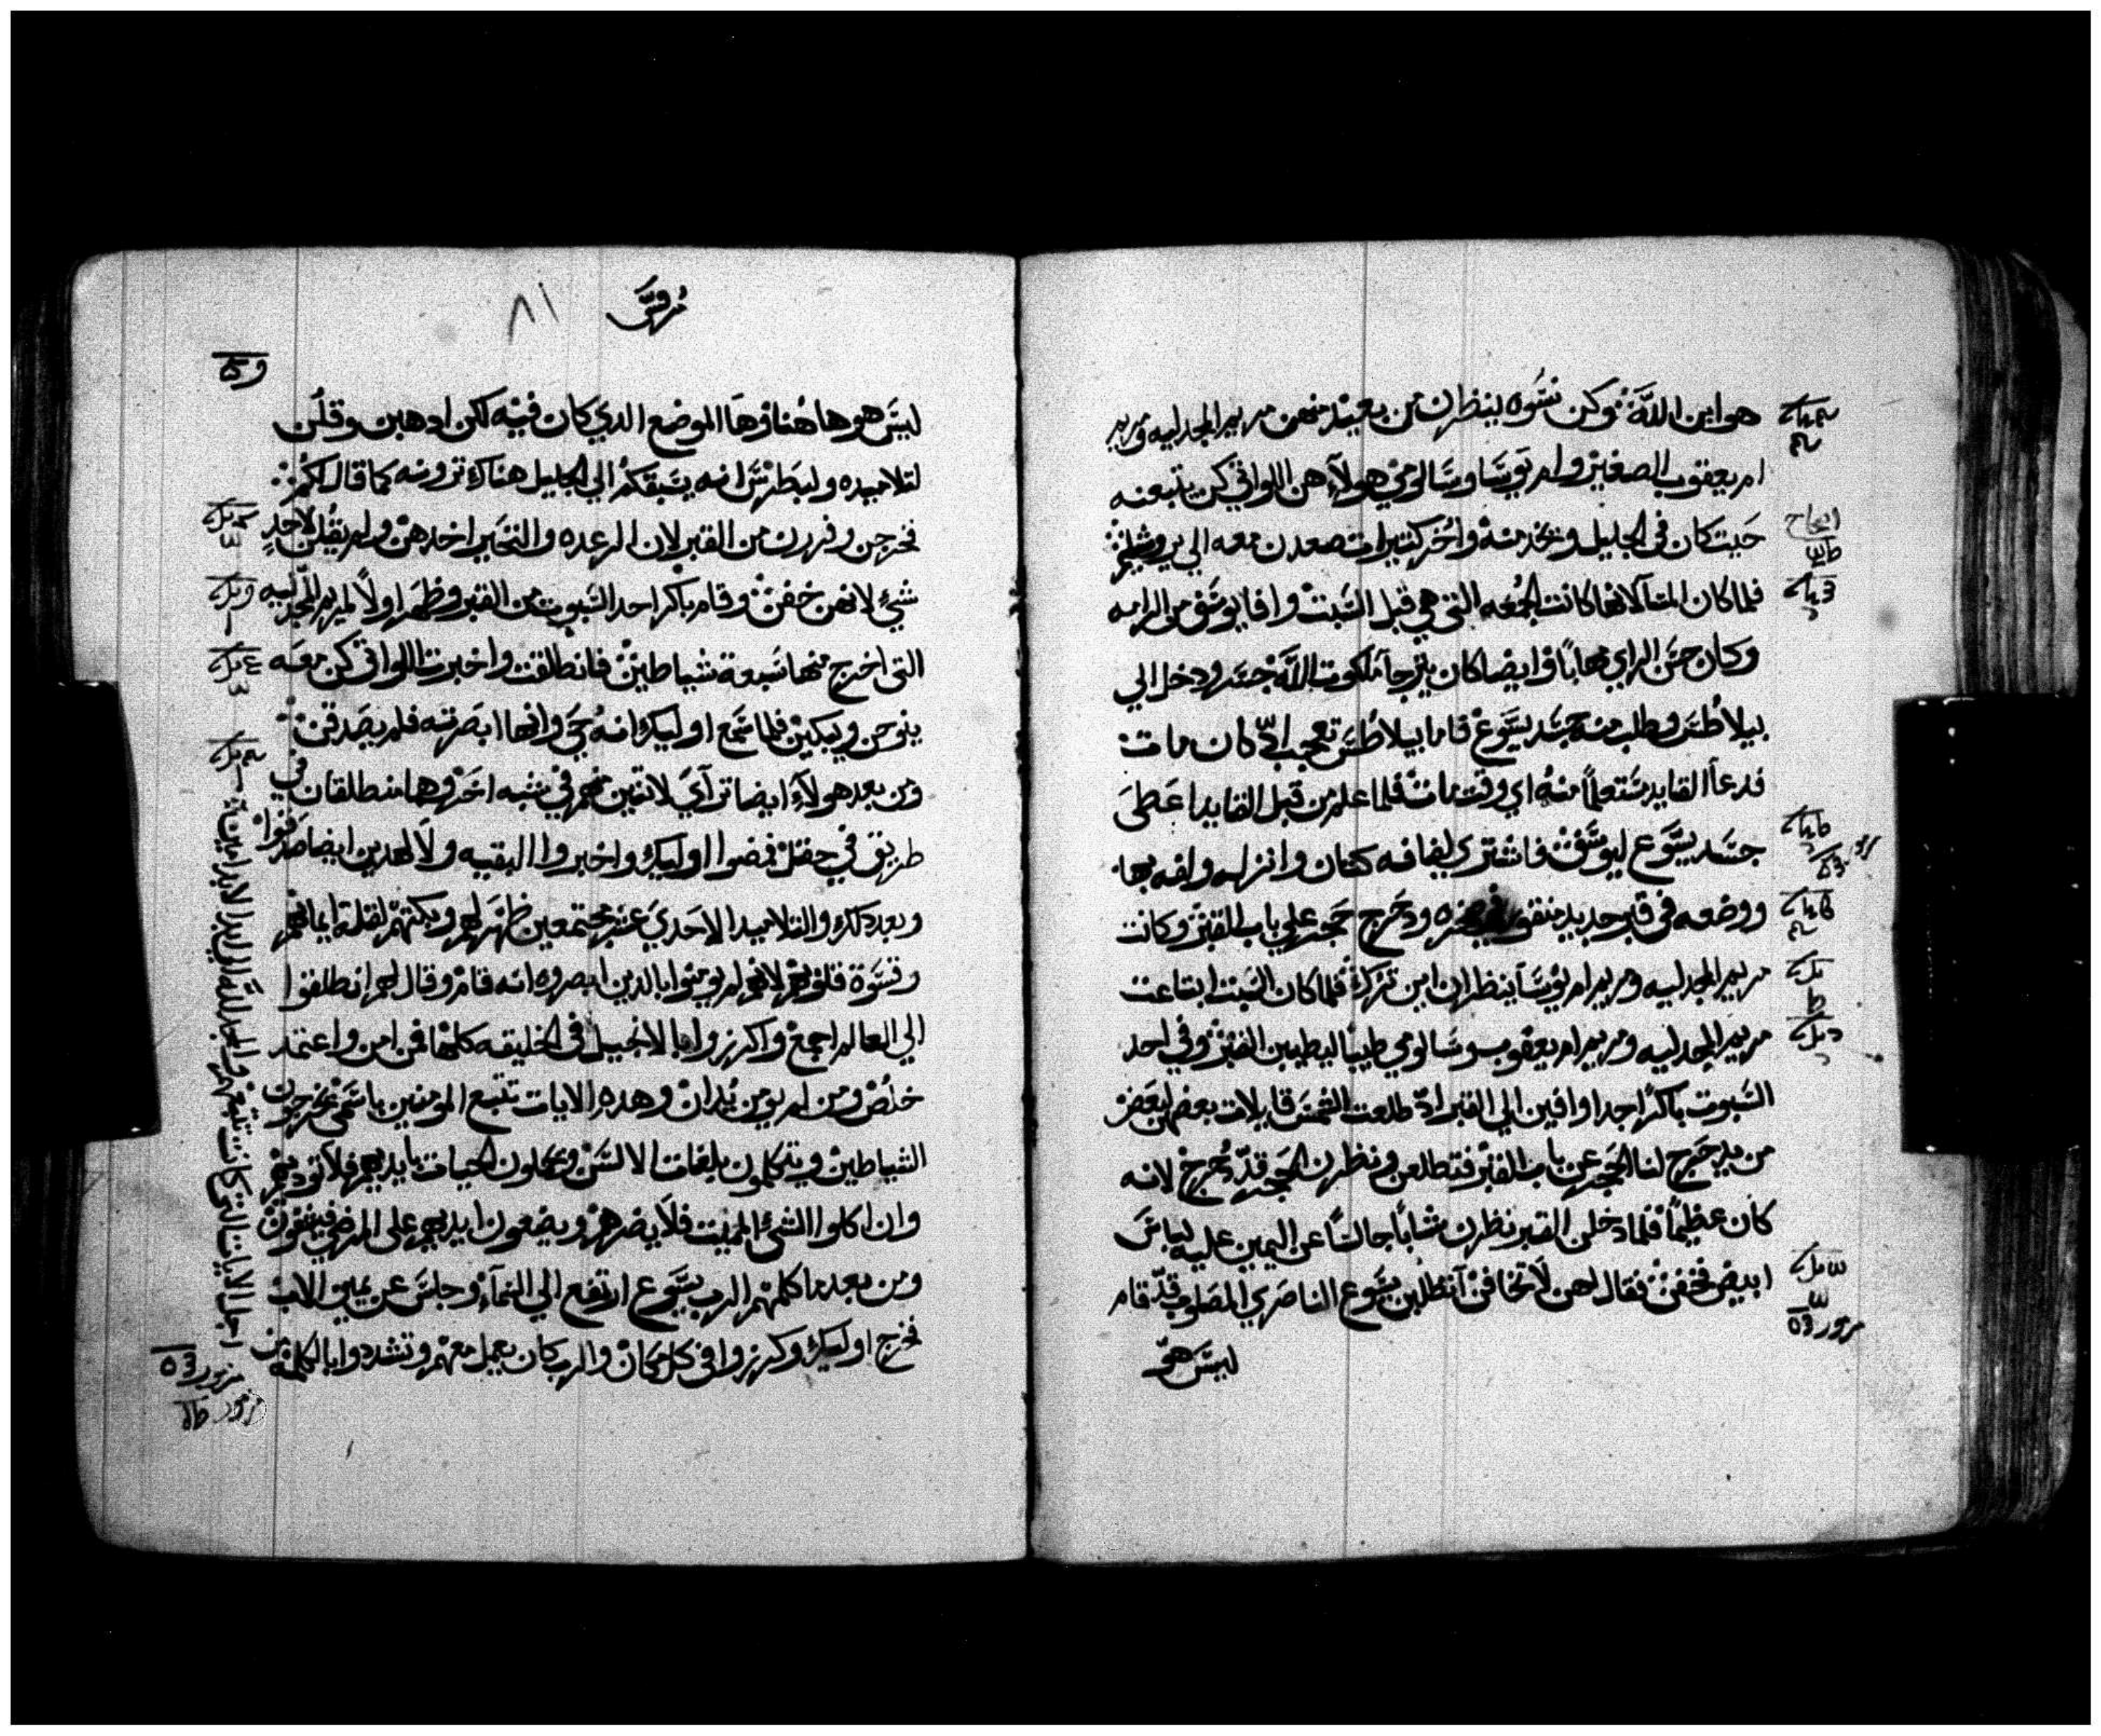 هو ابن الله وكن نسوه ينظرن من بعيد منهن مريم المجدليه ومريم
ام يعقوب الصغير وام يوسا وسالومي هولاء هن اللواتي كن يتبعنه
حيت كان في الجليل ويخدمنه واخر كتيرات صعدن معه الي يروشليم
فلما كان المسآ لانها كانت الجمعه التي هي قبل السبت وافا يوسف من الرامه
وكان حسن الراي مهابا وايضا كان يترجا ملكوت الله جسر ودخل الي
بيلاطس وطلب منه جسد يسوع فاما بيلاطس تعجب اد كان مات
فدعا القايد مستعلما منه اي وقت مات فلما علم من قبل القايد اعطى
جسد يسوع ليوسف فاشترى لفافه كتان وانزله ولفه بها
ووضعه في قبر جديد منقور في صخره ودحرج حجر علي باب القبر وكانت
مريم المجدليه ومريم ام يوسا ينظران اين ترك فلما كان السبت ابتاعت
مريم المجدليه ومريم ام يعقوب وسالومي طيبا ليطيبن القبر وفي احد
السبوت باكرا جدا وافين الي القبر اد طلعت الشمس قايلات بعضهن لبعض
من يدحرج لنا الحجر عن باب القبر فتطلعن ونظرن الحجر قد دحرج لانه
كان عظيما فلما دخلن القبر نظرن شابا جالسا عن اليمين عليه لباس
ابيض فخفن فقال لهن لا تخافن آتطلبن يسوع الناصري المصلوب قد قام
ليس هو
مرقس ٨١
ليس هو هاهنا وها الموضع الدي كان فيه لكن ادهبن وقلن
لتلاميده ولبطرس انه يسبقكم الي الجليل هناك ترونه كما قال لكم
فخرجن وفررن من القبر لان الرعده والتحير اخدهن ولم يقلن لاحد
شيء لانهن خفن وقام باكر احد السبوت من القبر وظهر اولا لمريم المجدليه
التى اخرج منها سبعة شياطين فانطلقت واخبرت اللواتي كن معه
ينوحن ويبكين فلما سمع اوليك انه حي وانها ابصرته فلم يصدقن
ومن بعد هولاء ايضا تراآي لاتنين منهم في شبه اخر وهما منطلقان في
طريق في حقل فمضوا اوليك واخبروا البقيه ولا لهدين ايضا صدقوا
وبعد دلك والتلاميد الاحدي عشر مجتمعين ظهر لهم وبكتهم لقلة ايمانهم
وقسوة قلوبهم لانهم لم يومنوا بالدين ابصروه انه قام وقال لهم انطلقوا
الي العالم اجمع واكرزوا بالانجيل في الخليقه كلها فمن امن واعتمد
خلص ومن لم يومن يدان وهده الايات تتبع المومنين باسمي يخرجون
الشياطين ويتكلمون بلغات الالسن ويحملون الحيات بايديهم فلا توديهم
وان اكلوا الشي المميت فلا يضرهم ويضعون ايديهم على المرضي فيشفون
ومن بعد ما كلمهم الرب يسوع ارتفع الي السمآ وجلس عن يمين الاب
فخرج اوليك وكرزوا في كل مكان والرب كان يعمل معهم وتشددوا بالكلمة من
اجل الايات التي كانت تتبعهم